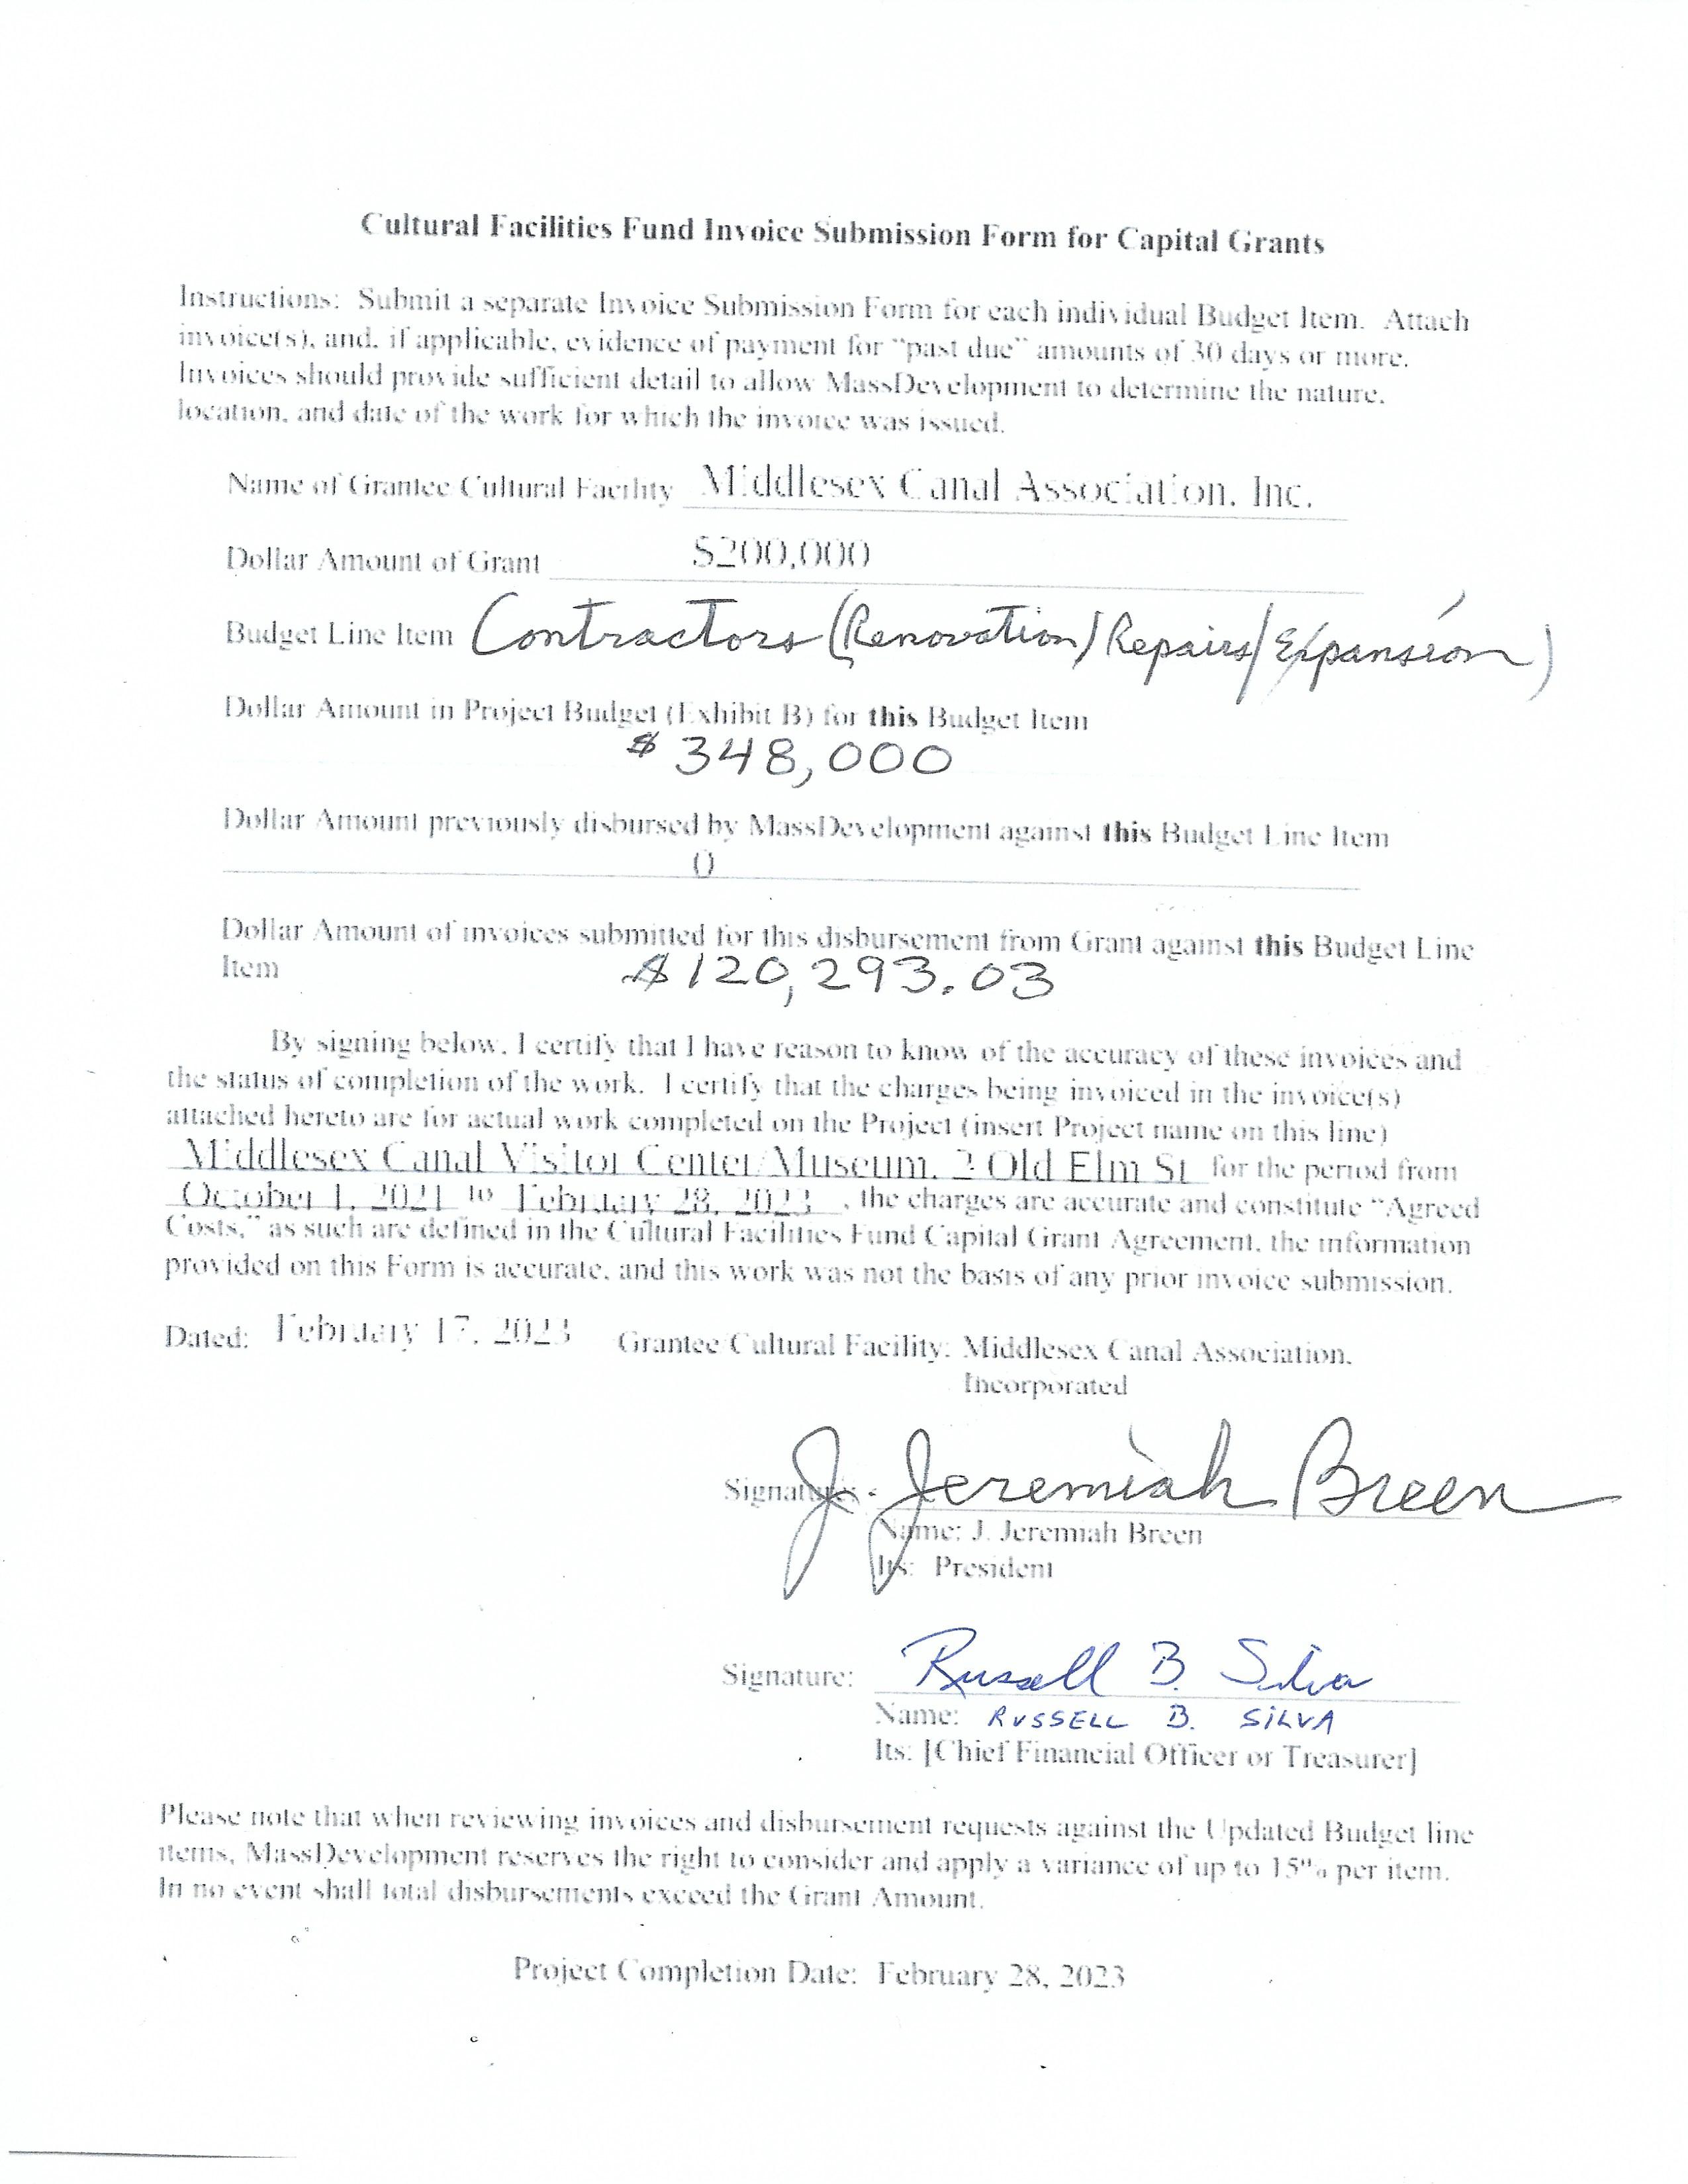 Cultural Facilities Fund Invoice Submission Form for Capital Grants
Instructions: Submit a separate Invoice Submission Form for each individual Budget Item. Attach
invoice(s), and, if applicable, evidence of payment for "past due" amounts of 30 days or more.
Invoices should provide sufficient detail to allow MassDevelopment to determine the nature,
location, and date of the work for which the invoice was issued.
Name of Grantee Cultural Facility Middlesex Canal Association, Inc.
Dollar Amount of Grant $200,000
Budget Line Item Contractors (Renovation/Repairs/Expansion)
Dollar Amount in Project Budget (Exhibit B) for this Budget Item
$ 348,000
Dollar Amount previously disbursed by MassDevelopment against this Budget Line Item
0
Dollar Amount of invoices submitted for this disbursement from Grant against this Budget Line
Item $120,293.03
By signing below, I certify that I have reason to know of the accuracy of these invoices and
the status of completion of the work. I certify that the charges being invoiced in the invoice(s)
attached hereto are for actual work completed on the Project (insert Project name on this line)
Middlesex Canal Visitor Center/Museum, 2 Old Elm St for the period from
October 1, 2021 to February 28, 2023, the charges are accurate and constitute "Agreed
Costs," as such are defined in the Cultural Facilities Fund Capital Grant Agreement, the information
provided on this Form is accurate, and this work was not the basis of any prior invoice submission.
Dated: February 17, 2023 Grantee/Cultural Facility: Middlesex Canal Association,
Incorporated
Signature: J. Jeremiah Breen
Name: J. Jeremiah Breen
Its: President
Signature: Russell B. Silva
Name: RUSSELL B. SILVA
Its: [Chief Financial Officer or Treasurer]
Please note that when reviewing invoices and disbursement requests against the Updated Budget line
items, MassDevelopment reserves the right to consider and apply a variance of up to 15% per item.
In no event shall total disbursements exceed the Grant Amount.
Project Completion Date: February 28, 2023